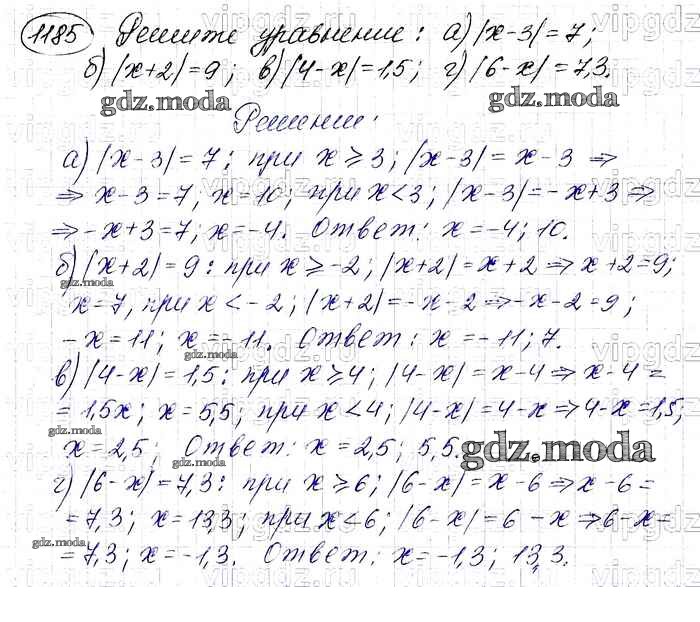 1185 Решите уравнение: а) |x-3|=7;
б) |x+2|=9; в) |4-x|=1,5; г) |6-x|=7,3.
gdz.moda gdz.moda
Решение:
а) |x-3|=7: при x⩾3; |x-3|=x-3 ⇒
⇒ x-3=7, x=10; при x<3; |x-3|=-x+3 ⇒
⇒ -x+3=7; x=-4. Ответ: x=-4; 10.
б) |x+2|=9: при x⩾-2; |x+2|=x+2 ⇒ x+2=9;
gdz.moda
x=7, при x<-2; |x+2|=-x-2 ⇒ -x-2=9;
-x=11; x=-11. Ответ: x=-11; 7.
gdz.moda
в) |4-x|=1,5: при x⩾4; |4-x|=x-4 ⇒ x-4=
=1,5x; x=5,5; при x<4; |4-x|=4-x ⇒ 4-x=1,5;
gdz.moda
x=2,5; Ответ: x=2,5; 5,5.
gdz.moda
gdz.moda
г) |6-x|=7,3: при x⩾6; |6-x|=x-6 ⇒ x-6=
=7,3; x=13,3; при x<6; |6-x|=6-x ⇒ 6-x=
gdz.moda
=7,3; x=-1,3. Ответ: x=-1,3; 13,3.